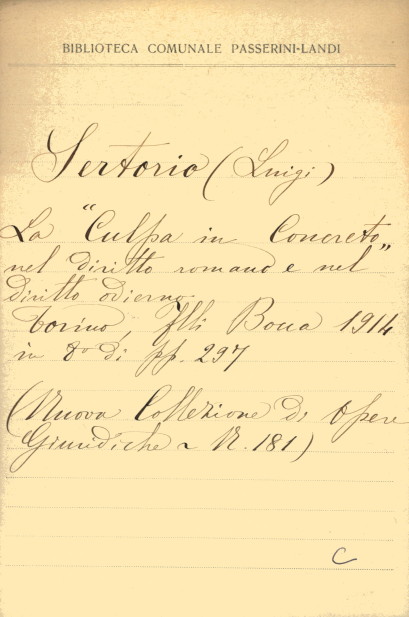 BIBLIOTECA COMUNALE PASSERINI-LANDI
Sertorio (Luigi)
La "Culpa in Concreto"
nel diritto romano e nel
diritto odierno.
Torino, Flli Bocca 1914
in 8° di pp. 297
(Nuova Collezione di Opere
Giuridiche ~ N. 181)
C